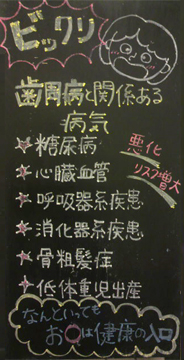 ビックリ
歯周病と関係ある
病気
糖尿病
心臓血管
呼吸器系疾患
消化器系疾患
骨粗髪症
低体重児出産
悪化
リスク増大
なんといっても
お○は健康の入口